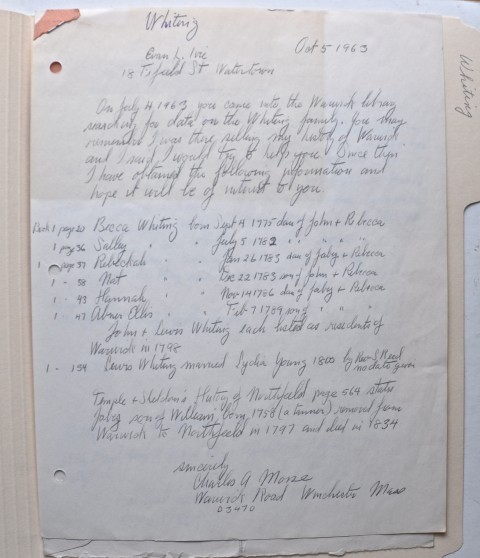 Whiting
Oct 5 1963
Evan L. Ivie
18 Fifield St Watertown
On July 4 1963 you came into the Warwick library
searching for data on the Whiting family. You may
remember I was there selling my history of Warwick
and I said I would try to help you. Since then
I have obtained the following information and
hope it will be of interest to you
Book 1 page 20 Becca Whiting born Sept 4 1775 dau of John + Rebecca
1 page 36 Salley " " July 5 1782 " " " "
1 page 37 Rebeckah " " Jan 26 1783 dau of Jabez + Rebecca
1 - 38 Nat " " Dec 22 1783 son of John + Rebecca
1 - 43 Hannah " " Nov 14 1786 dau of Jabez + Rebecca
1 - 47 Abner Ellis " " Feb 7 1789 son of " " "
John + Lewis Whiting each listed as residents of
Warwick in 1798
1 - 154 Lewis Whiting married Lydia Young 1800 by Rev S Reed
no date given
Temple + Sheldon's History of Northfield page 564 states
Jabez son of William, born 1758 (a tanner) removed from
Warwick to Northfield in 1797 and died in 1834
sincerely
Charles A Morse
Warwick Road Winchester Mass
03470
Whiting